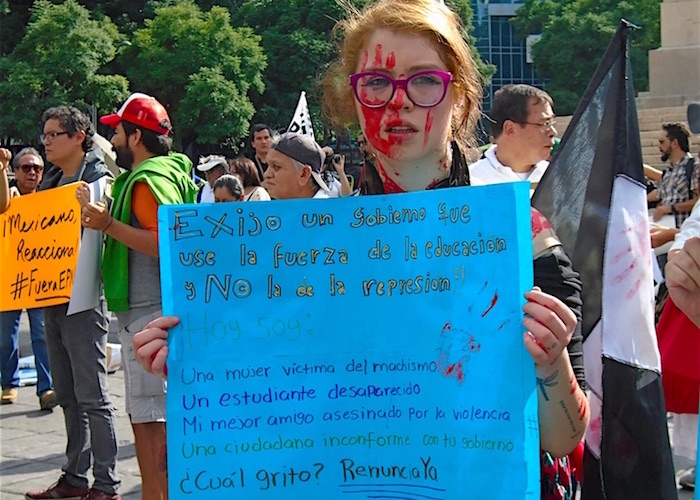 ¡Mexicano,
Reacciona
#FueraEPN
Exijo un gobierno que
use la fuerza de la educación
y No la de la represión"
¡Hoy soy:
Una mujer víctima del machismo
Un estudiante desaparecido
Mi mejor amigo asesinado por la violencia
Una ciudadana inconforme con tu gobierno
¿Cuál grito? Renuncia Ya